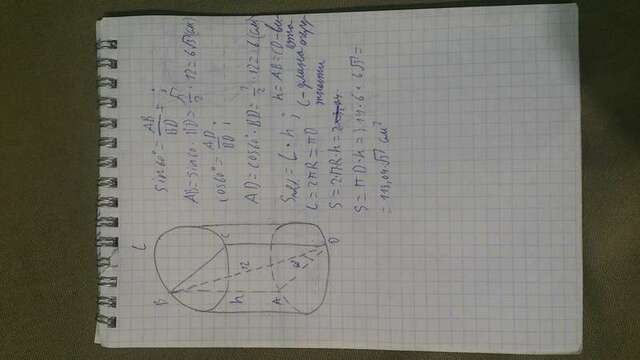 L
B
h
12
C
A
D
sin60° = AB/BD = ;
AB = sin60 · BD = √3/2 · 12 = 6√3 (см)
cos60° = AD/BD ;
AD = cos60° · BD = 1/2 · 12 = 6 (см)
S = L · h ; h = AB = CD - вы-
сота
L = 2πR = πD L - длина окру-
жности
S = 2πR · h =
S = πD · h = 3,14 · 6 · 6√3 =
= 113,04 · √3 см²